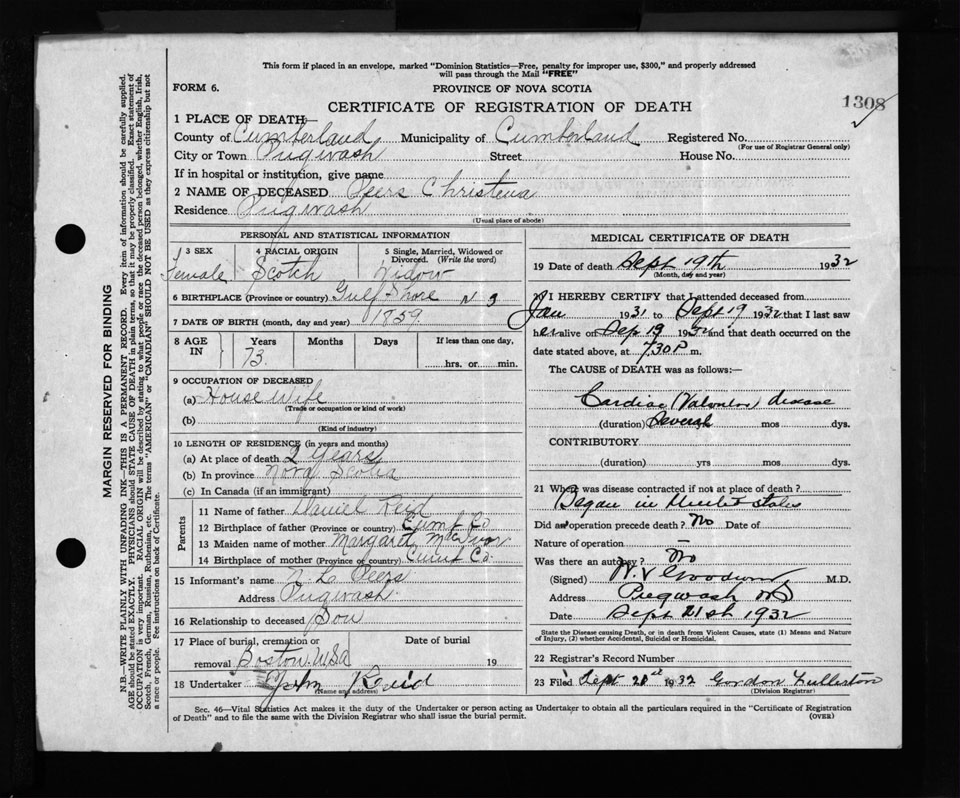 This form if placed in an envelope, marked "Dominion Statistics—Free, penalty for improper use, $300," and properly addressed
will pass through the Mail "FREE"
FORM 6.
PROVINCE OF NOVA SCOTIA
CERTIFICATE OF REGISTRATION OF DEATH
1308
1 PLACE OF DEATH—
County of Cumberland Municipality of Cumberland Registered No.
(For use of Registrar General only)
City or Town Pugwash Street House No.
If in hospital or institution, give name
2 NAME OF DECEASED Peers Christena
Residence Pugwash
(Usual place of abode)
PERSONAL AND STATISTICAL INFORMATION
3 SEX
Female
4 RACIAL ORIGIN
Scotch
5 Single, Married, Widowed or
Divorced. (Write the word)
Widow
6 BIRTHPLACE (Province or country) Gulf Shore N S
7 DATE OF BIRTH (month, day and year) 1859
8 AGE
IN
Years
73
Months
Days
If less than one day,
hrs. or min.
9 OCCUPATION OF DECEASED
(a) House Wife
(Trade or occupation or kind of work)
(b)
(Kind of industry)
10 LENGTH OF RESIDENCE (in years and months)
(a) At place of death 2 Years
(b) In province Nova Scotia
(c) In Canada (if an immigrant)
Parents
11 Name of father Daniel Reid
12 Birthplace of father (Province or country) Cumb Co
13 Maiden name of mother Margaret
14 Birthplace of mother (Province or country) Cumb Co
15 Informant's name Peers
Address Pugwash
16 Relationship to deceased Son
17 Place of burial, cremation or
removal Boston, USA
Date of burial
19
18 Undertaker John Reid
(Name and address)
MEDICAL CERTIFICATE OF DEATH
19 Date of death Sept 19th 1932
(Month, day and year)
20 I HEREBY CERTIFY that I attended deceased from
Jan 1931 to Sept 19 1932 that I last saw
her alive on Sep 19 1932 and that death occurred on
date stated above, at 7.30 P m.
The CAUSE of DEATH was as follows:—
Cardiac (Valvular) disease
(duration) Several mos dys.
CONTRIBUTORY
(duration) yrs mos dys.
21 Where was disease contracted if not at place of death?
Began in United States
Did an operation precede death? No Date of
Nature of operation
Was there an autopsy? No
(Signed) M.D.
Address Pugwash NS
Date Sept 21st 1932
State the Disease causing Death, or in death from Violent Causes, state (1) Means and Nature
of Injury, (2) whether Accidental, Suicidal or Homicidal.
22 Registrar's Record Number
23 Filed Sept 21st 1932 Gordon
(Division Registrar)
Sec. 46—Vital Statistics Act makes it the duty of the Undertaker or person acting as Undertaker to obtain all the particulars required in the "Certificate of Registration
of Death" and to file the same with the Division Registrar who shall issue the burial permit.
(OVER)
MARGIN RESERVED FOR BINDING
N.B.—WRITE PLAINLY WITH UNFADING INK—THIS IS A PERMANENT RECORD. Every item of information should be carefully supplied.
AGE should be stated EXACTLY. PHYSICIANS should STATE CAUSE OF DEATH in plain terms, so that it may be properly classified. Exact statement of
OCCUPATION is very important. RACIAL ORIGIN will be described by stating to what people or race the deceased person belonged, whether English, Irish,
Scotch, French, German, Russian, Ruthenian, etc. The terms "AMERICAN" or "CANADIAN" SHOULD NOT BE USED as they express citizenship but not
a race or people. See instructions on back of Certificate.